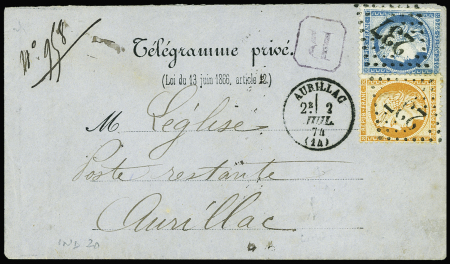 N° 958.
Télégramme privé.
(Loi du 13 juin 1866, article 12.)
AURILLAC
2E 2
JUIL.
74
(14)
M Léglisé
Poste restante
Aurillac